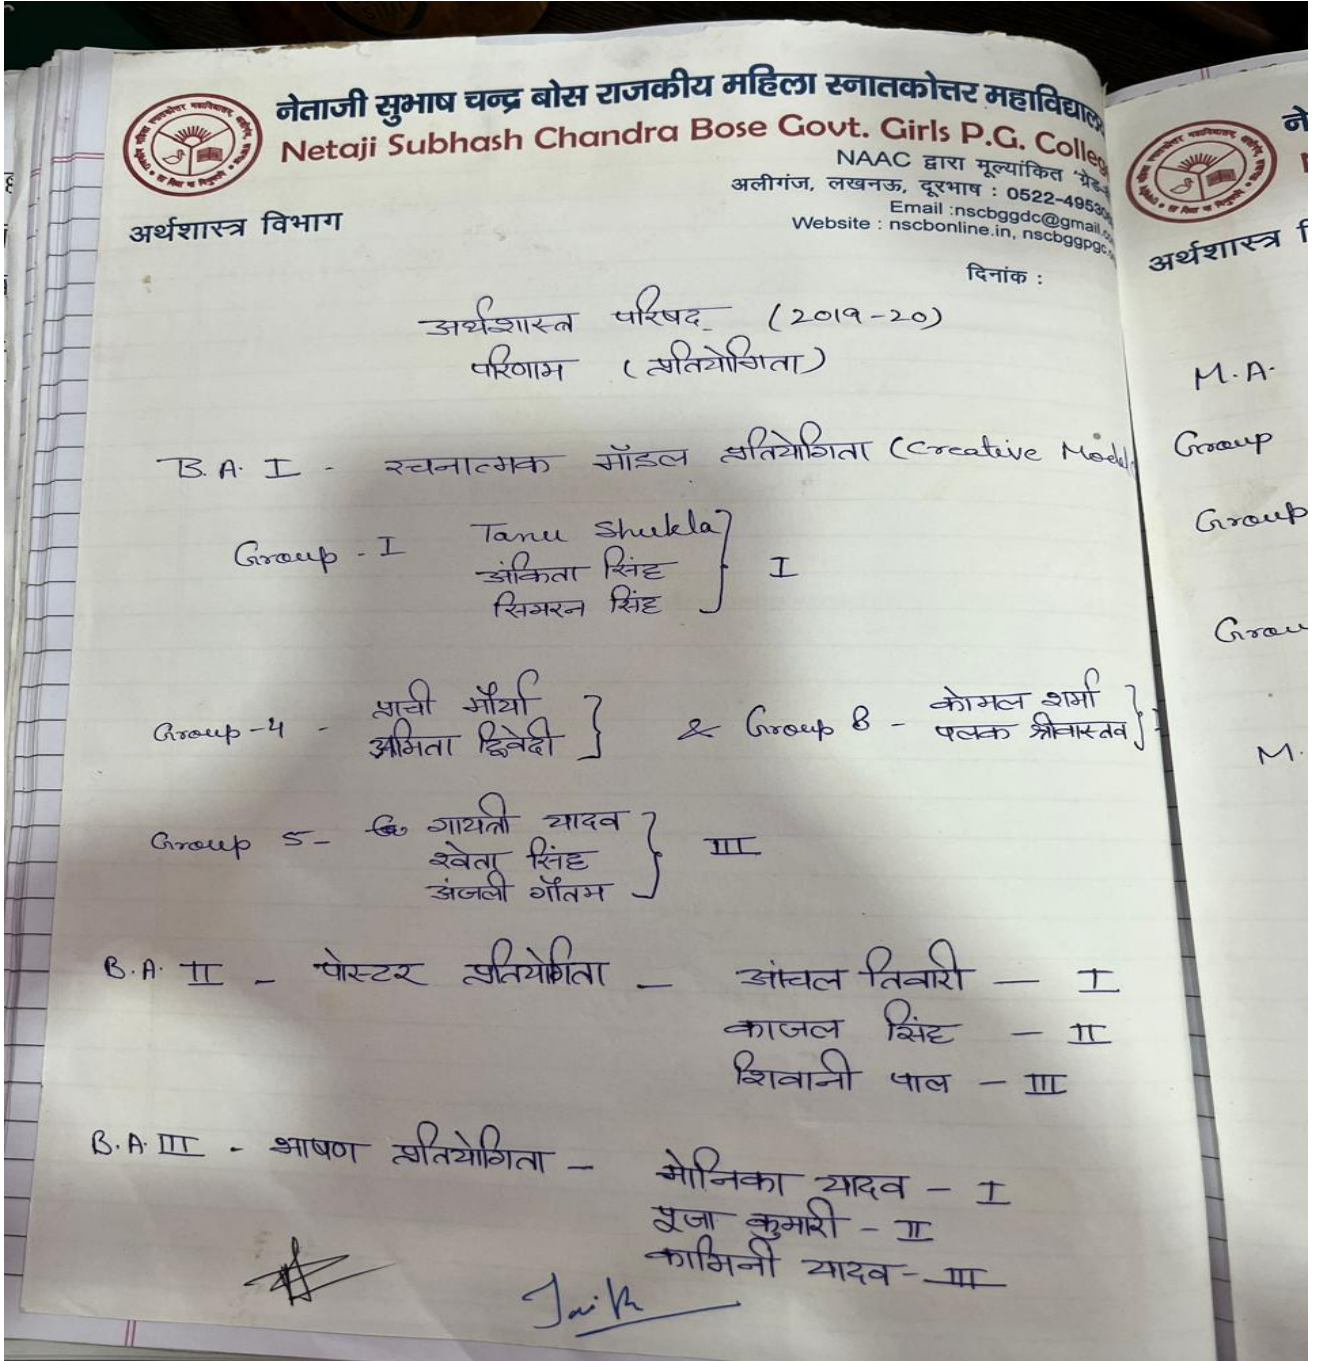 नेताजी सुभाष चन्द्र बोस राजकीय महिला स्नातकोत्तर महाविद्यालय
Netaji Subhash Chandra Bose Govt. Girls P.G. College
NAAC द्वारा मूल्यांकित 'ग्रेड
अलीगंज, लखनऊ, दूरभाष : 0522-4953
Email :nscbggdc@gmail.
Website : nscbonline.in, nscbggpgc.
अर्थशास्त्र विभाग
दिनांक :
अर्थशास्त्र परिषद (2019-20)
परिणाम (प्रतियोगिता)
B.A. I - रचनात्मक मॉडल प्रतियोगिता (Creative Model
Group - I Tanu Shukla
अंकिता सिंह I
सिमरन सिंह
Group-4 - प्राची मौर्या & Group 8 - कोमल शर्मा
अमिता द्विवेदी पलक श्रीवास्तव
Group 5- गायत्री यादव
श्वेता सिंह III
अंजली गौतम
B.A. II - पोस्टर प्रतियोगिता - आंचल तिवारी - I
काजल सिंह - II
शिवानी पाल - III
B.A. III - भाषण प्रतियोगिता - मोनिका यादव - I
पूजा कुमारी - II
कामिनी यादव - III
ने
अर्थशास्त्र
M.A.
Group
Group
Grou
M.